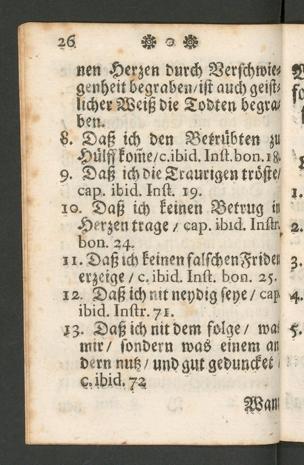 26
nen Herzen durch Verschwie-
genheit begraben/ist auch geist-
licher Weiß die Todten begra-
ben.
8. Daß ich den Betrübten zu
Hülff kom̄e/c.ibid. Inst.bon.18.
9. Daß ich die Traurigen tröste/
cap. ibid. Inst. 19.
10. Daß ich keinen Betrug in
Herzen trage / cap. ibid. Instr.
bon. 24.
11. Daß ich keinen falschen Friden
erzeige / c. ibid. Inst. bon. 25.
12. Daß ich nit neydig seye / cap.
ibid. Instr. 71.
13. Daß ich nit dem folge / was
mir / sondern was einem an
dern nutz / und gut geduncket /
c. ibid. 72
Wann
1.
2.
3.
4.
5.